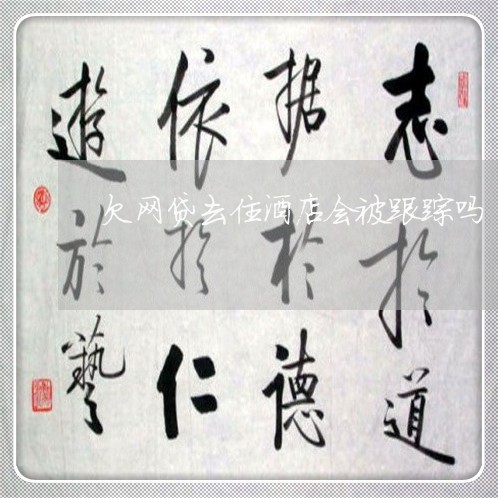 志於道
据於德
依於仁
遊於藝
欠网贷去住酒店会被跟踪吗